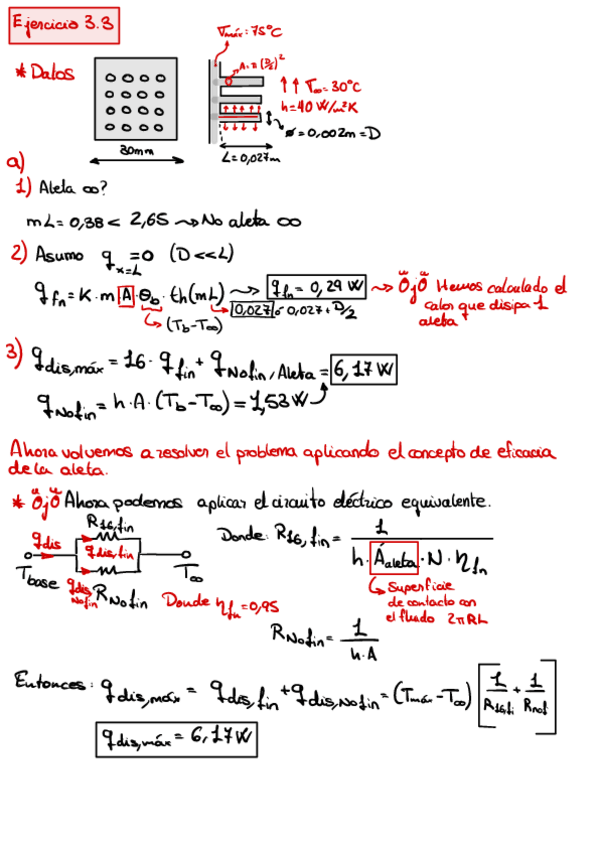 Ejercicio 3.3
* Datos
Tmáx = 75°C
A = π (D/2)²
↑↑ T∞ = 30°C
h = 40 W/m²K
ø = 0,002m = D
30mm
L = 0,027m
a)
1) Aleta ∞?
mL = 0,38 < 2,65 ⇝ No aleta ∞
2) Asumo q x=L = 0 (D << L)
qfn = K·m·A·θb·th(mL) ⇝ qfn = 0,29 W ⇝ ÖjÖ Hemos calculado el
calor que disipa 1
aleta
(Tb - T∞)
0,027 ó 0,027 + D/2
3) qdis,máx = 16· qfin + qNofin, Aleta = 6,17 W
qNofin = h·A·(Tb - T∞) = 1,53 W
Ahora volvemos a resolver el problema aplicando el concepto de eficacia
de la aleta.
* ÖjÖ Ahora podemos aplicar el circuito eléctrico equivalente.
R16,fin
qdis
qdis,fin
Tbase
T∞
qdis Nofin
RNofin
Donde ηfn = 0,95
Donde: R16,fin = 1 / (h·Áaleta·N·ηfn)
Superficie
de contacto con
el fluido 2πRL
RNofin = 1 / (h·A)
Entonces: qdis,máx = qdis,fin + qdis,Nofin = (Tmáx - T∞) [1/R16,fi + 1/Rnof]
qdis,máx = 6,17 W